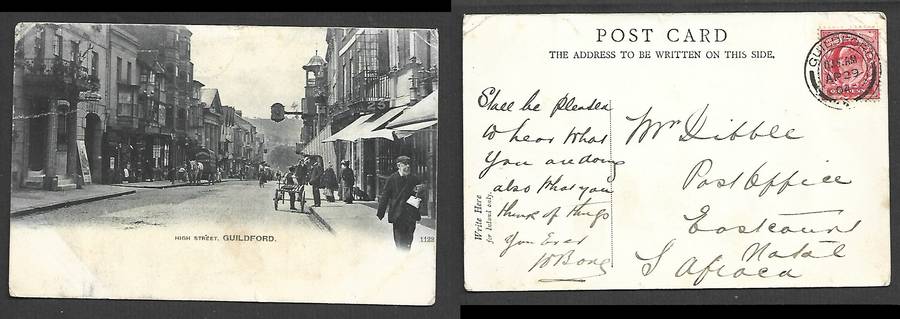 HIGH STREET, GUILDFORD.
1123
POST CARD
THE ADDRESS TO BE WRITTEN ON THIS SIDE.
GUILDFORD
AP 29
04
Write Here
for Inland only.
Shall be pleased
to hear what
You are doing
also what you
think of things
Yours Ever
Mr Dibble
Post Office
Eastcourt
Natal
S Africa